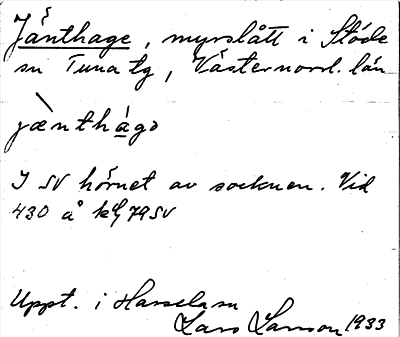 Jänthage, myrslått i Stöde
sn Tuna tg, Västernorrl. län
jænthágə
I SV hörnet av socknen. Vid
430 å kbl 79 SV
Uppt. i Hassela sn
Lars Larsson 1933